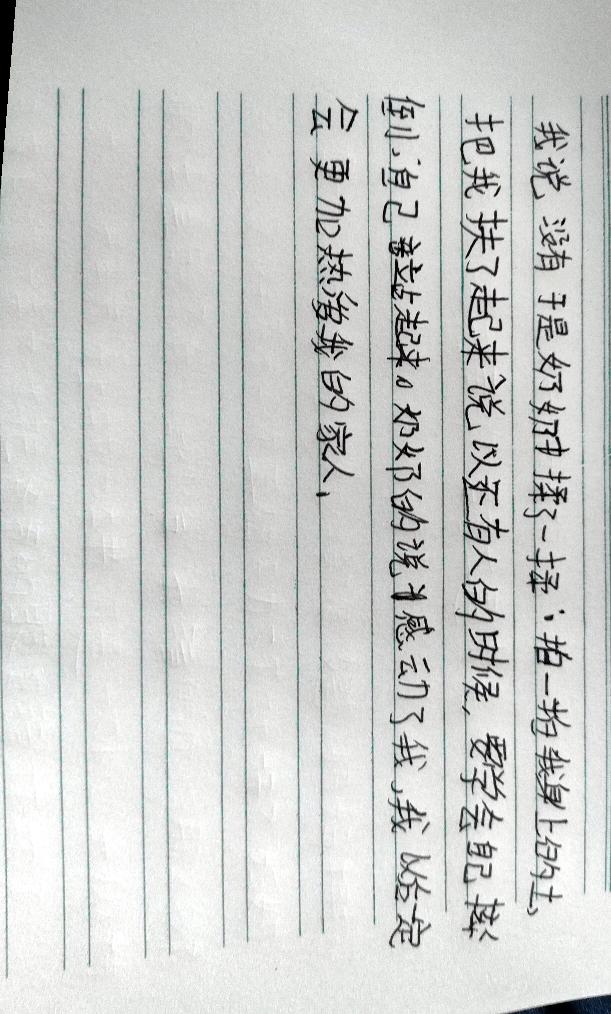 我说没有于是奶奶揉了一揉，拍一拍我身上的土、
把我扶了起来说以不有人的时候，要学会自己摔
倒、自己站起来。奶奶的说感动了我，我以后定
会更加热爱我的家人、